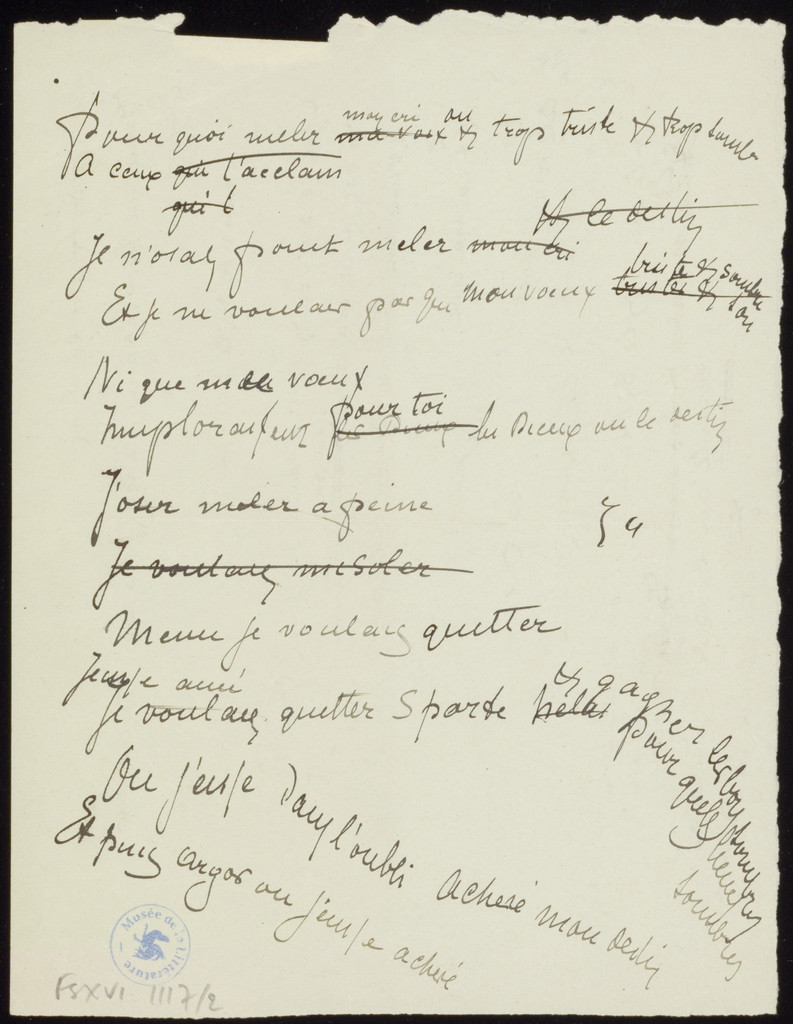 mon cri ou
Pourquoi meler ma voix & trop triste & trop sombre
A ceux qui t'acclam
qui t
& le destin
Je n'osais point meler mon cri
triste & sombre
Et je ne voulais pas que mon voeux tristes & son
Ni que mon voeux
pour toi
Implorassent les Dieux les Dieux ou le destin
J'osai meler a peine
Je voulais m'isoler
Meme je voulais quitter
J'eusse aimé
Je voulais quitter Sparte helas
& gagner les
pour quelques
sombres
Ou j'eusse dans l'oubli acheve mon destin
Et puis Argos ou j'eusse achevé
Musée de la Littérature
FSXVI 1117/2